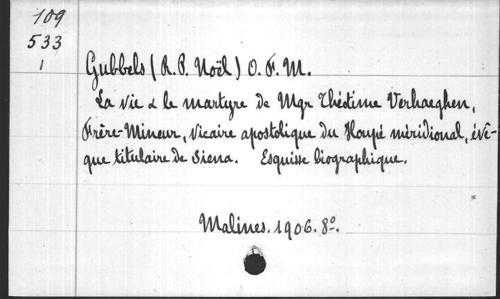 109
533
1
Gubbels (R. P. Noël) O. F. M.
La vie & le martyre de Mgr Théotime Verhaeghen,
Frère-Mineur, Vicaire apostolique du Houpé méridional, évê-
que titulaire de Siena. Esquisse biographique.
Malines. 1906. 8º.